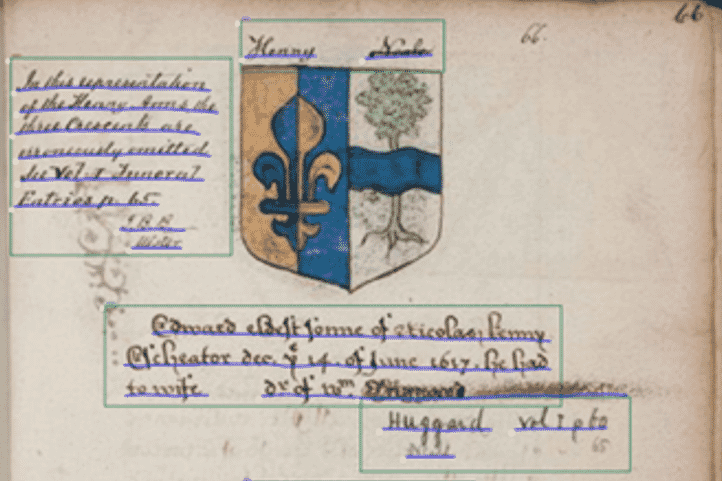 66
66.
Henny
In this representation
of the Henny Arms the
three Crescents are
erroneously omitted
See Vol I Funeral
Entries p. 65
Edward eldest sonne of Nicolas Henny
Escheator dec. yͤ 14. of June 1617. he had
to wife dr of Wm
Huggard vol I p 60
65